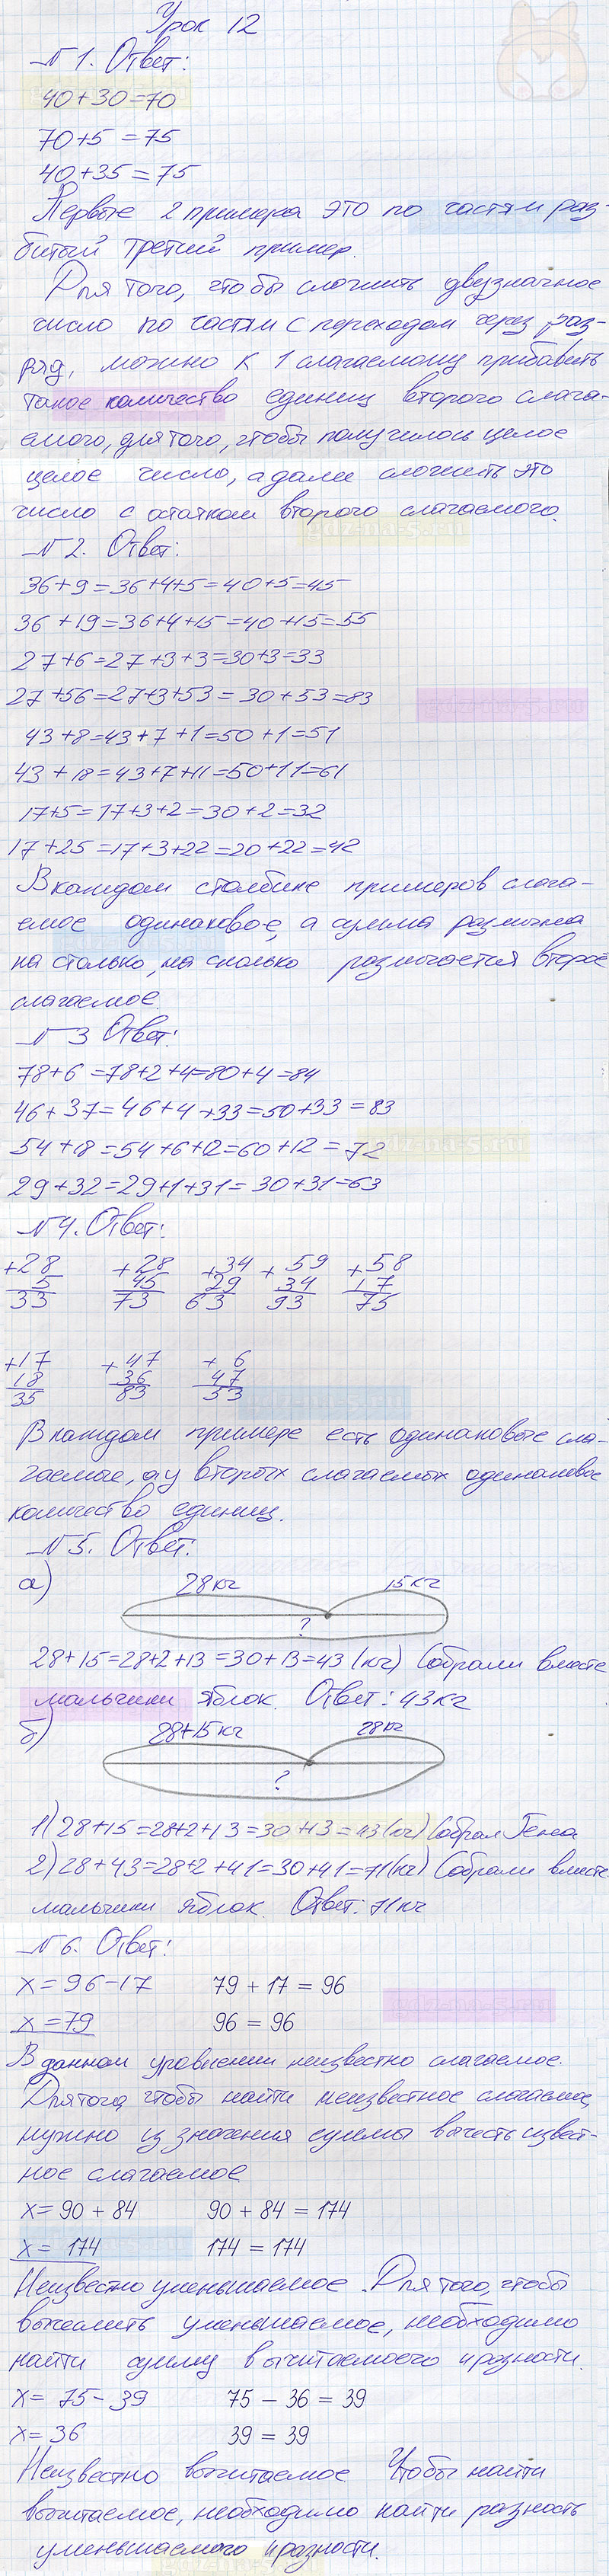 Урок 12
№1. Ответ:
40+30=70
70+5=75
40+35=75
Первые 2 примера это по частям раз-
битый третий пример.
Для того, чтобы сложить двузначное
число по частям с переходом через раз-
ряд, можно к 1 слагаемому прибавить
такое количество единиц второго слага-
емого, для того, чтобы получилось целое
целое число, а далее сложить это
число с остатком второго слагаемого.
№2. Ответ:
36+9=36+4+5=40+5=45
36+19=36+4+15=40+15=55
27+6=27+3+3=30+3=33
27+56=27+3+53=30+53=83
43+8=43+7+1=50+1=51
43+18=43+7+11=50+11=61
17+5=17+3+2=30+2=32
17+25=17+3+22=20+22=42
В каждом столбике примеров слага-
емое одинаковое, а сумма различна
на столько, на сколько различается второе
слагаемое.
№3 Ответ:
78+6=78+2+4=80+4=84
46+37=46+4+33=50+33=83
54+18=54+6+12=60+12=72
29+32=29+1+31=30+31=63
№4. Ответ:
+28 +28 +34 +59 +58
5 45 29 34 17
33 73 63 93 75
+17 +47 +6
18 36 47
35 83 53
В каждом примере есть одинаковые сла-
гаемые, а у вторых слагаемых одинаковое
количество единиц.
№5. Ответ:
а)
28 кг 15 кг
?
28+15=28+2+13=30+13=43 (кг) Собрали вместе
мальчики яблок. Ответ: 43 кг
б)
28+15 кг 28 кг
?
1) 28+15=28+2+13=30+13=43 (кг) Собрал Гена
2) 28+43=28+2+41=30+41=71 (кг) Собрали вместе
мальчики яблок. Ответ: 71 кг
№6. Ответ:
x=96-17 79+17=96
x=79 96=96
В данном уравнении неизвестно слагаемое.
Для того, чтобы найти неизвестное слагаемое,
нужно из значения суммы вычесть извест-
ное слагаемое
x=90+84 90+84=174
x=174 174=174
Неизвестно уменьшаемое. Для того, чтобы
вычислить уменьшаемое, необходимо
найти сумму вычитаемоего и разности.
x=75-39 75-36=39
x=36 39=39
Неизвестно вычитаемое Чтобы найти
вычитаемое, необходимо найти разность
уменьшаемого и разности.